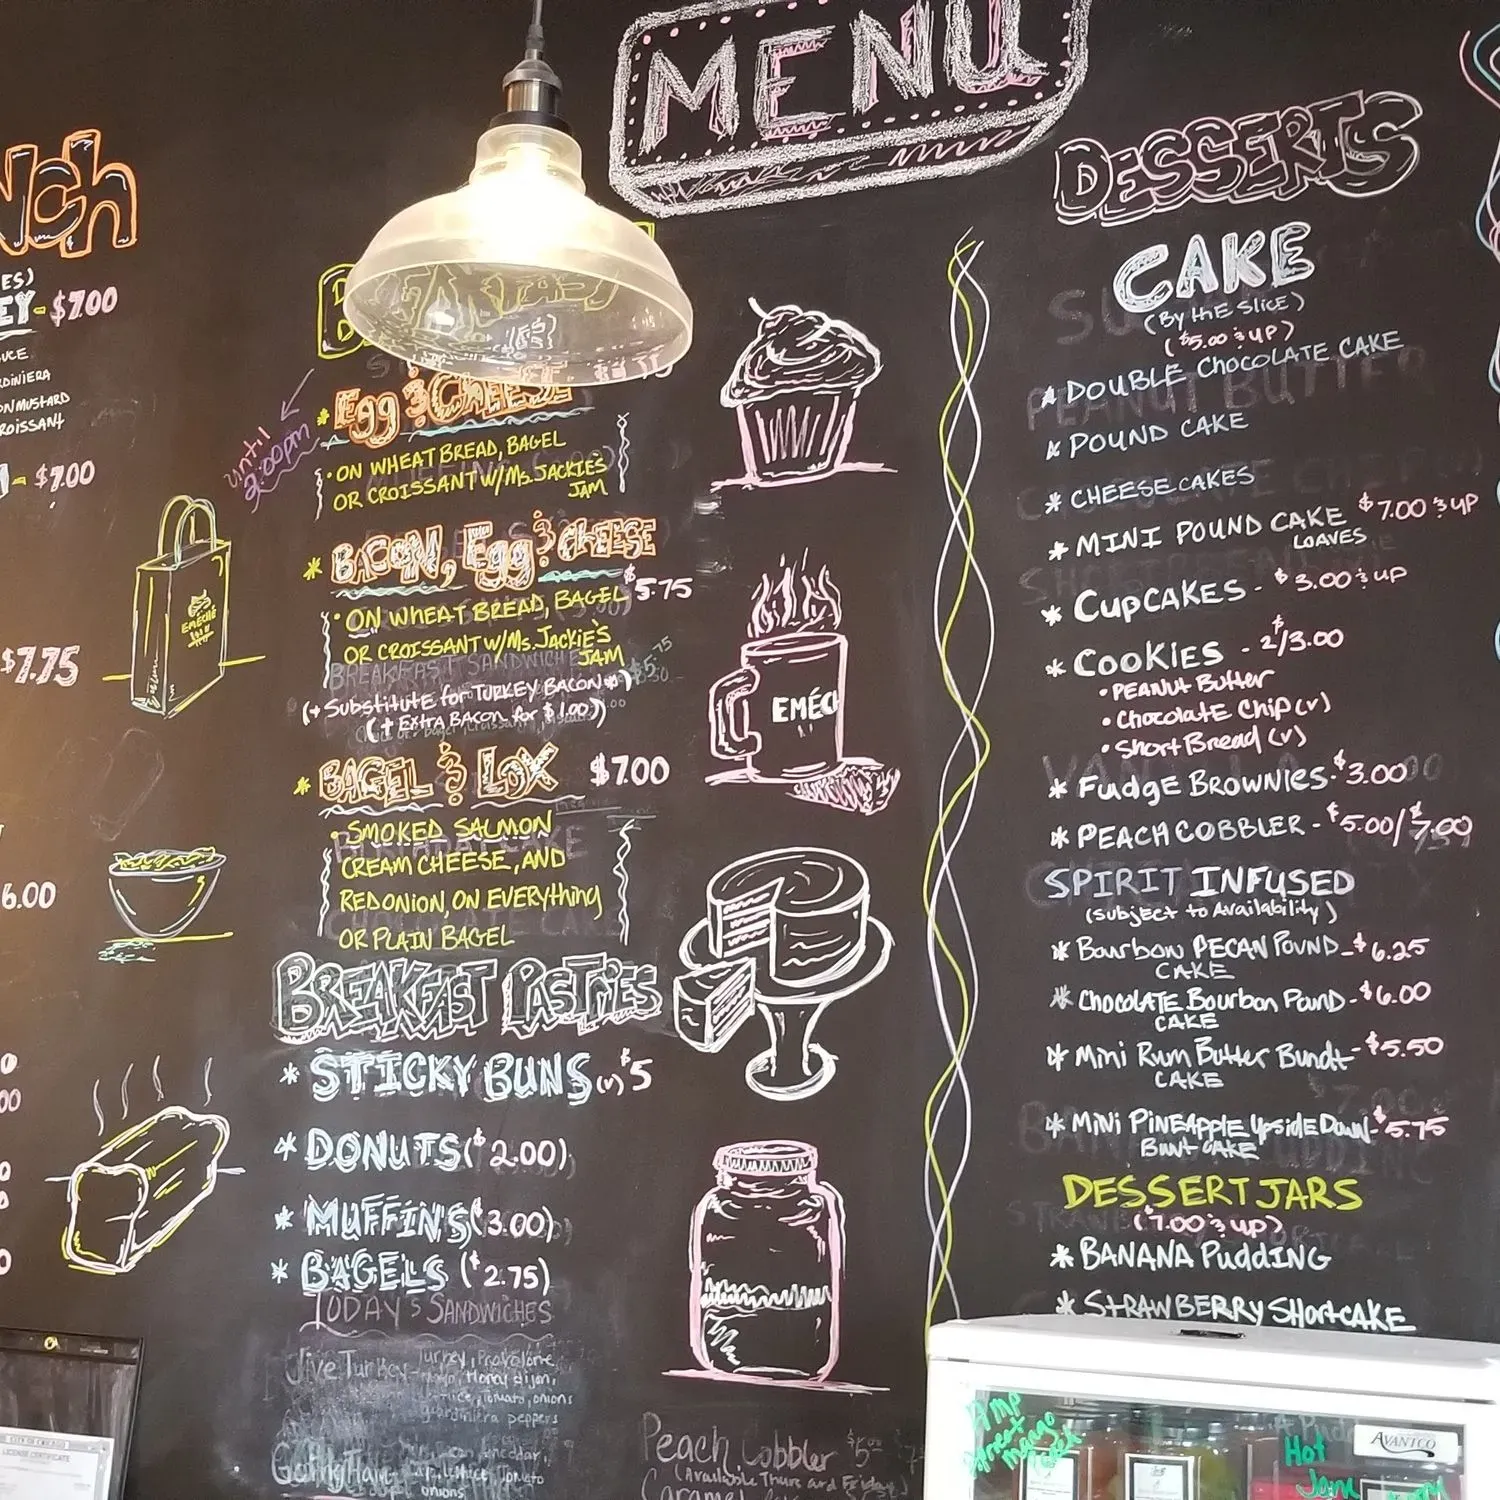 MENU
NCh
ES)
EY-$7.00
UCE
RDINIERA
ON MUSTARD
ROISSANT
- $7.00
$7.75
6.00
EMÉCHÉ
until
2:00pm
* Egg & CHEESE
• ON WHEAT BREAD, BAGEL
OR CROISSANT W/Ms. JACKIE'S
JAM
* BACON, Egg & CHEESE
$5.75
• ON WHEAT BREAD, BAGEL
OR CROISSANT W/Ms. JACKIE'S
JAM
BREAKFAST SANDWICHES
(+ Substitute for TURKEY BACON*)
(+ EXTRA BACON for $1.00)
* BAGEL & LOX $7.00
• SMOKED SALMON
CREAM CHEESE, AND
RED ONION, ON EVERYthing
OR PLAIN BAGEL
BREAKFAST PASTRIES
* STICKY BUNS (v) $5
* DONUTS ($2.00)
* MUFFIN'S ($3.00)
* BAGELS ($2.75)
TODAY'S SANDWICHES
Jive Turkey - Turkey, Provolone,
Mayo, Honey dijon,
lettuce, Tomato, onions
giardiniera peppers
Tomato
onions
EMÉC
Peach Cobbler $5.00
(Available Thurs and Friday)
Caramel
DESSERTS
CAKE
(By the Slice)
($5.00 & up)
* DOUBLE Chocolate CAKE
* POUND CAKE
* CHEESECAKES
* MINI POUND CAKE $7.00 & up
LOAVES
* CUPCAKES - $3.00 & up
* COOKIES - 2/$3.00
• PEANUT Butter
• Chocolate Chip (v)
• Short Bread (v)
* Fudge BROWNIES - $3.00
* PEACH COBBLER - $5.00/$7.00
SPIRIT INFUSED
(Subject to Availability)
* Bourbon PECAN POUND - $6.25
CAKE
* Chocolate Bourbon Pound - $6.00
CAKE
* Mini Rum Butter Bundt - $5.50
CAKE
* MiNi PINEAPPLE UpsidE Down - $5.75
Bunt CAKE
DESSERT JARS
($7.00 & up)
* BANANA PuddING
* STRAWBERRY SHORtCAKE
AVANTCO
Hot
Jam
CITY OF CHICAGO
LICENSE CERTIFICATE